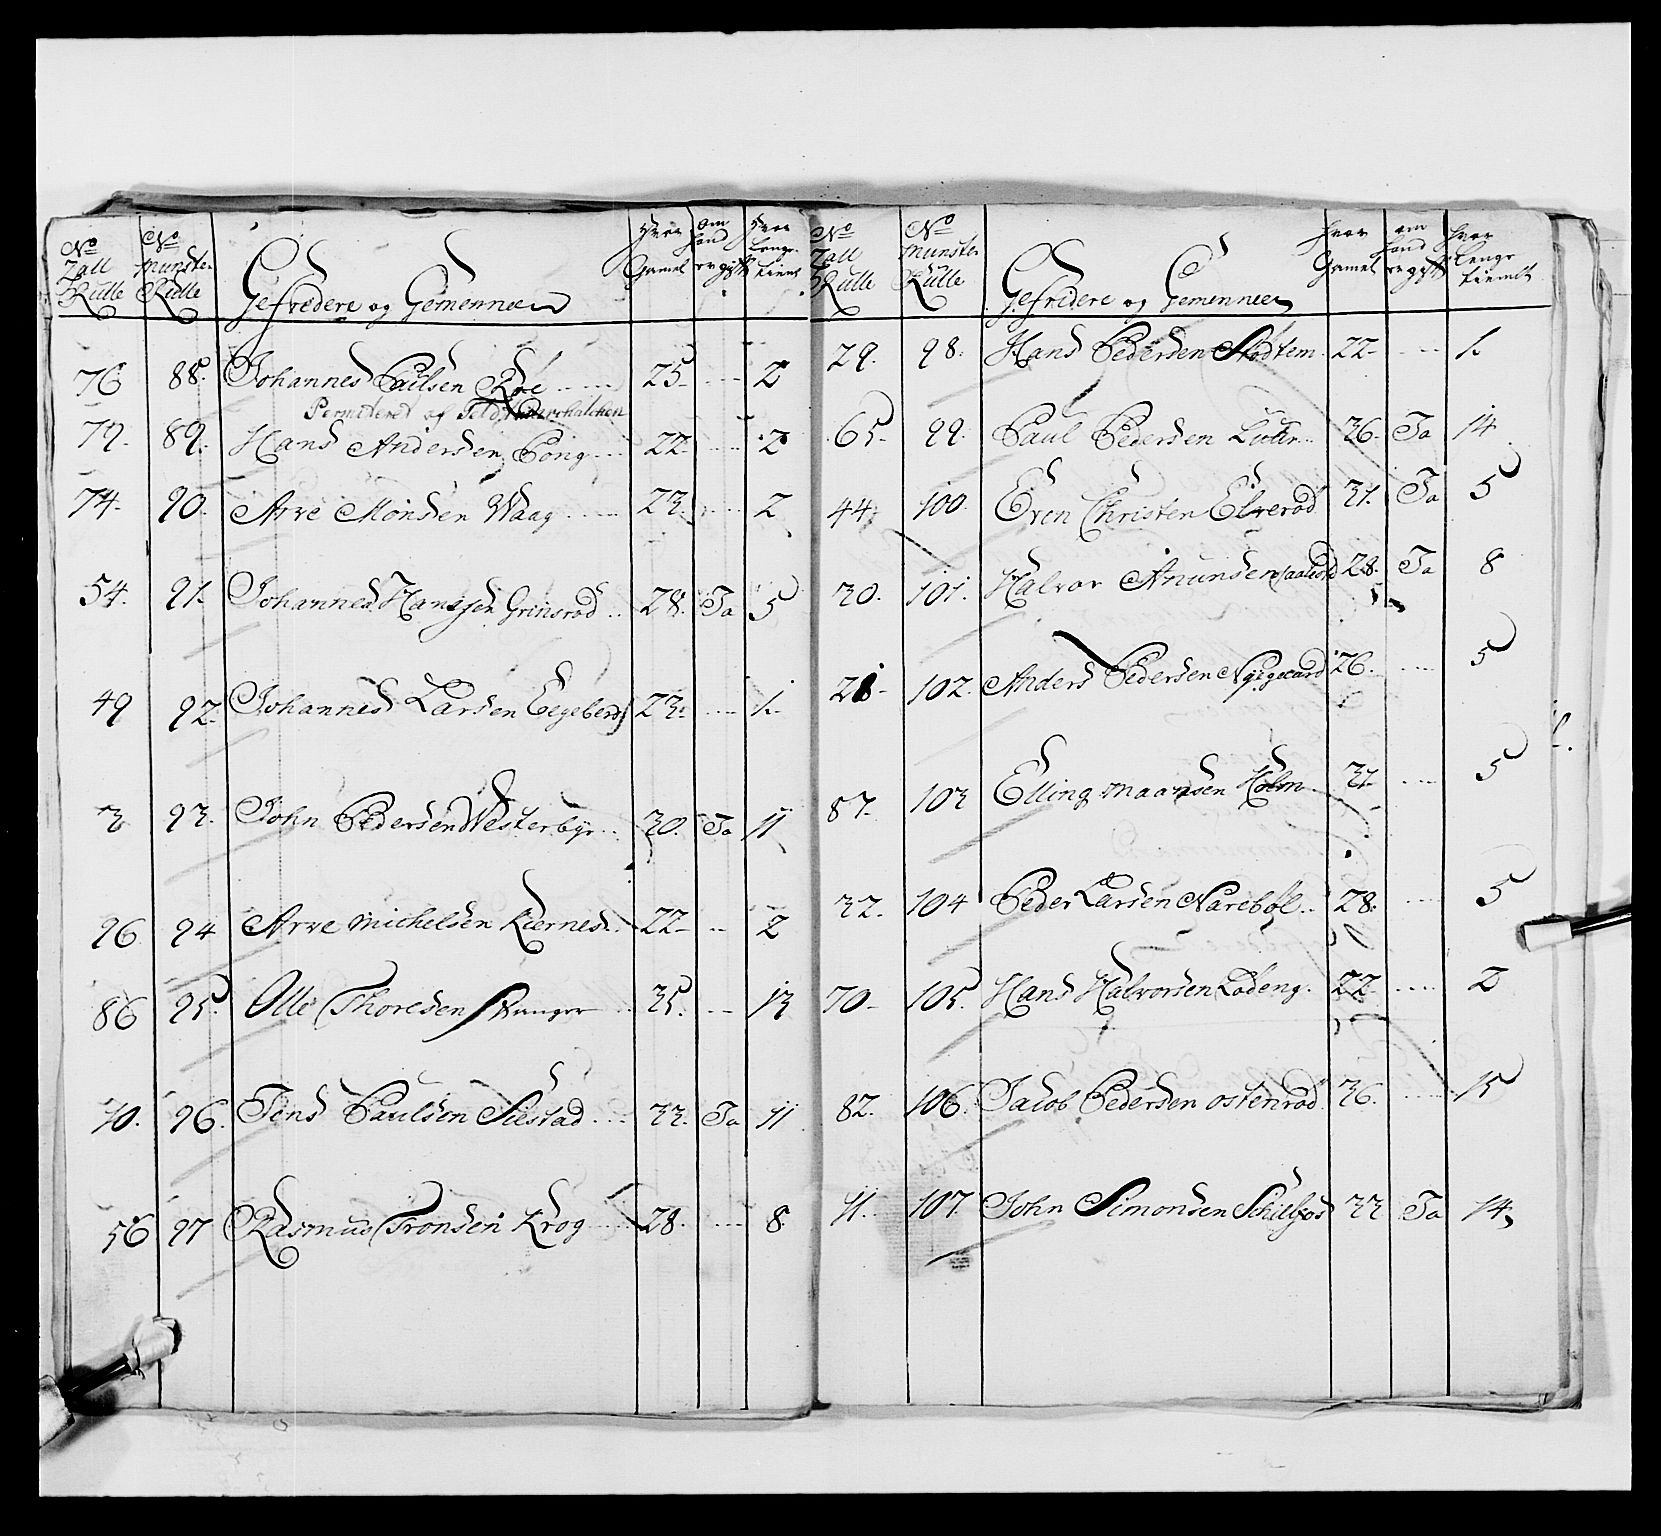 No Zall Rulle | No Munster Rulle | Gefredere og Gemenneer | Hvor Gamel | om hand er gift | Hvor Lenge tient
76 88. Johannes Pailsen Roe 25 2
Permiteret af Feldmarschalchen
79. 89. Hans Andersen Bong 22 2
74. 90. Arve Monsen Waag 23 2
54. 91. Johannes Hanssen Grinsrod 28. Ja 5
49 92 Johannes Larsen Eegeberg 23 1.
3 93. John Pedersen Westerbye 30. Ja 11
96 94 Arve Michelsen Kiernes 22 2
86 95. Olle Thoresen Wanger 35. 13
70. 96. Jens Paulsen Sustad 33. Ja 11
56 97 Rasmus Tronsen Krog 28. 8.
No Zall Rulle | No Munster Rulle | Gefredere og Gemenneer | hvor Gamel | om hand er gift | hvor Lenge tienet
29. 98. Hans Pedersen Stodtem 22 1.
65. 99. Paul Pedersen 36. Ja 14
44 100. Even Christen Elverod 31. Ja 5
30. 101. Halvor Anunsen 28. Ja 8
28 102. Anders Pedersen Nygegaard 26. 5
87. 103 Elling Maansen Holm 31 5
32. 104 Peder Larsen Narebøl 28. 5
70 105. Hans Halvorsen Lodeng. 22 2
82. 106. Jacob Pedersen ostenrod 36. 15
11. 107. John Simonsen 33 Ja 14